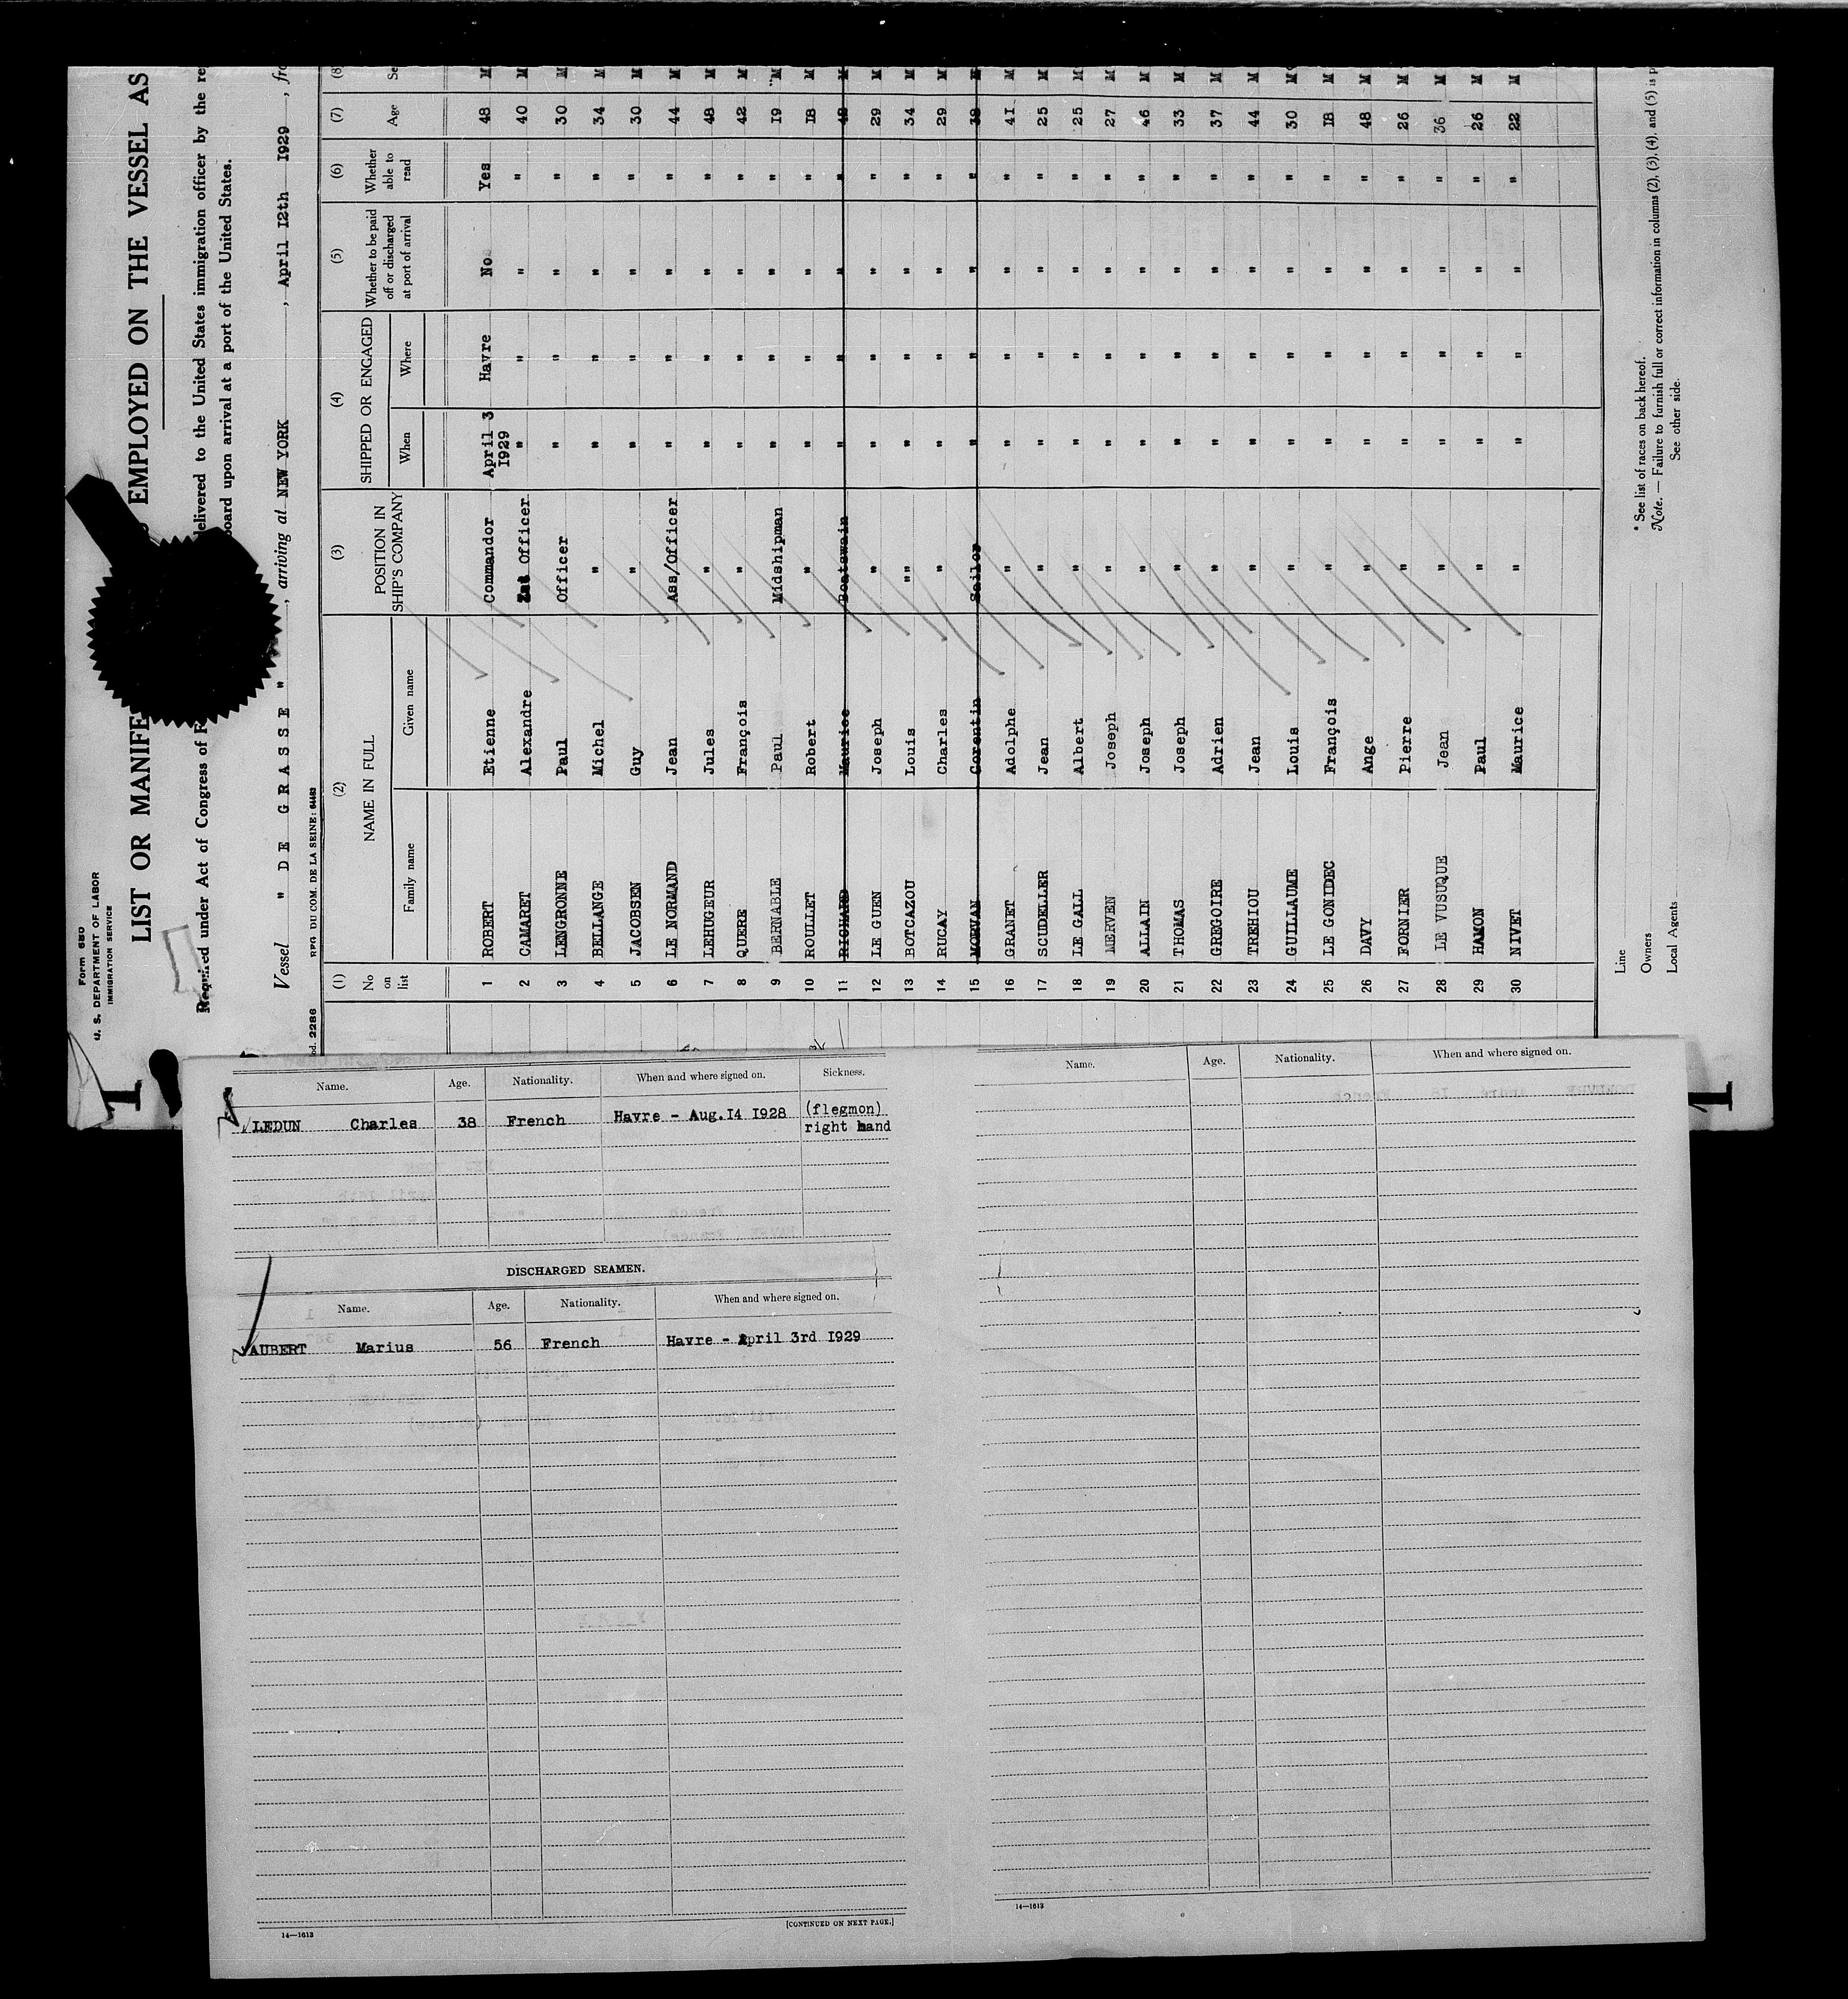 Form 680
U. S. DEPARTMENT OF LABOR
IMMIGRATION SERVICE
LIST OR MANIFE EMPLOYED ON THE VESSEL AS
Required under Act of Congress of F delivered to the United States immigration officer by the re
board upon arrival at a port of the United States.
Vessel " DE GRASSE " , arriving at NEW YORK , April 12th 1929 , fro
od. 2286 REG. DU COM. DE LA SEINE: 64463
(1) (2) (3) (4) (5) (6) (7) (8
No on list NAME IN FULL POSITION IN SHIP'S COMPANY SHIPPED OR ENGAGED Whether to be paid off or discharged at port of arrival Whether able to read Age Se
Family name Given name When Where
1 ROBERT Etienne Commandor April 3 1929 Havre No Yes 48 M
2 CAMARET Alexandre Officer " " " " 40 M
3 LENGRONNE Paul Officer " " " " 30 M
4 BELLANGE Michel " " " " " 34 M
5 JACOBSEN Guy " " " " " 30 M
6 LE NORMAND Jean Ass/Officer " " " " 44 M
7 LEHUGEUR Jules " " " " " 48 M
8 QUERE François " " " " " 42 M
9 BERNABLE Paul Midshipman " " " " 19 M
10 ROULLET Robert " " " " " 18 M
11 RICHARD Maurice Boatswain " " " " 42 M
12 LE GUEN Joseph " " " " " 29 M
13 BOTCAZOU Louis "" " " " " 34 M
14 RUCAY Charles " " " " " 29 M
15 MORVAN Corentin Sailor " " " " 38 M
16 GRANET Adolphe " " " " " 41 M
17 SCUDELLER Jean " " " " " 25 M
18 LE GALL Albert " " " " " 25 M
19 MERVEN Joseph " " " " " 27 M
20 ALLAIN Joseph " " " " " 46 M
21 THOMAS Joseph " " " " " 33 M
22 GREGOIRE Adrien " " " " " 37 M
23 TREHIOU Jean " " " " " 44 M
24 GUILLAUME Louis " " " " " 30 M
25 LE GONIDEC François " " " " " 18 M
26 DAVY Ange " " " " " 48 M
27 FORNIER Pierre " " " " " 26 M
28 LE VUSUQUE Jean " " " " " 36 M
29 HAMON Paul " " " " " 26 M
30 NIVET Maurice " " " " " 22 M
Line
Owners
Local Agents
* See list of races on back hereof.
Note. — Failure to furnish full or correct information in columns (2), (3), (4), and (5) is p
See other side.
Name. Age. Nationality. When and where signed on. Sickness.
LEDUN Charles 38 French Havre - Aug.14 1928 (flegmon)
right hand
DISCHARGED SEAMEN.
Name. Age. Nationality. When and where signed on.
AUBERT Marius 56 French Havre - April 3rd 1929
14—1613
[CONTINUED ON NEXT PAGE.]
Name. Age. Nationality. When and where signed on.
14—1613